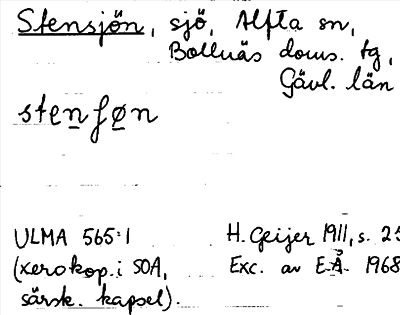 Stensjön, sjö, Alfta sn,
Bollnäs doms. tg,
Gävl. län
stenʃøn
ULMA 565:1 H. Geijer 1911, s. 25
(xerokop. i SOA, Exc. av E.Å. 1968
särsk. kapsel).